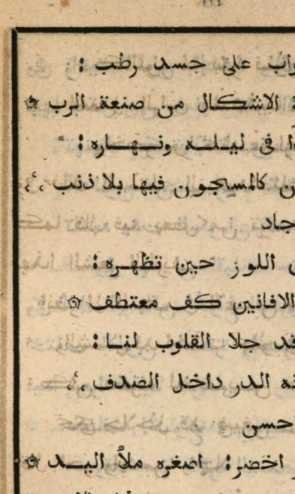 على جسد رطب :
الاشكال من صنعة الرب ۞
فى ليلـــه ونـــهـــاره :
كالمسجون فيها بلا ذنب
جاد
اللوز حين تظهـره :
الافانين كف معتطف ۞
جلا القلوب لنــا :
الدر داخل الصدف
حسن
اخضر : اصغره ملأ اليـــد ۞